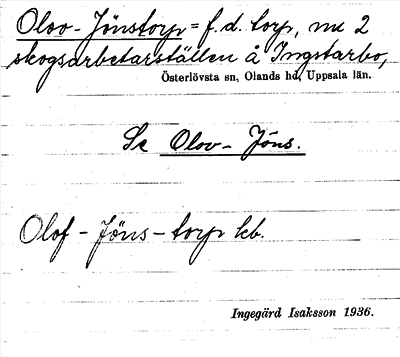 Olov-Jönstorp = f.d. torp, nu 2
skogsarbetarställen å Ingstarbo,
Österlövsta sn, Olands hd, Uppsala län.
Se Olov-Jöns.
Olof-Jöns-torp kb.
Ingegärd Isaksson 1936.